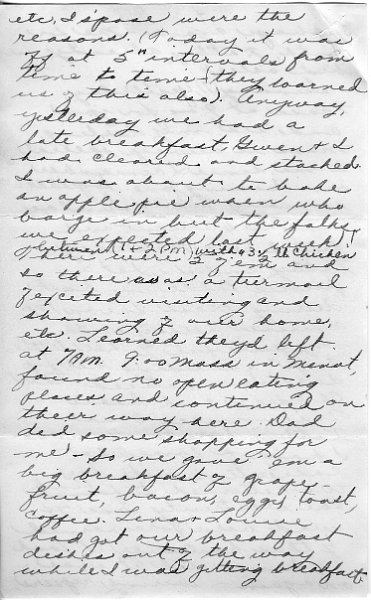 etc, I spose were the
reasons. (Today it was
off at 5" intervals from
time to time (they warned
us of this also). Anyway,
yesterday we had a
late breakfast, Gwen & I
had cleared and stacked.
I was about to bake
an apple pie when who
barge in but the folks
we expected last week!
(between 1 + 2 P.M.) with 4 3½ lb chicken
There were 5 of em and
so there was a turmoil
of excited visiting and
showing of our home,
etc. Learned they'd left
at 7 AM. 9:00 Mass in Minot,
found no open eating
places and continued on
their way here. Dad
did some shopping for
me - so we gave 'em a
big breakfast of grape-
fruit, bacon, eggs, toast,
coffee. Lena + Louise
had got our breakfast
dishes out of the way
while I was getting breakfast.